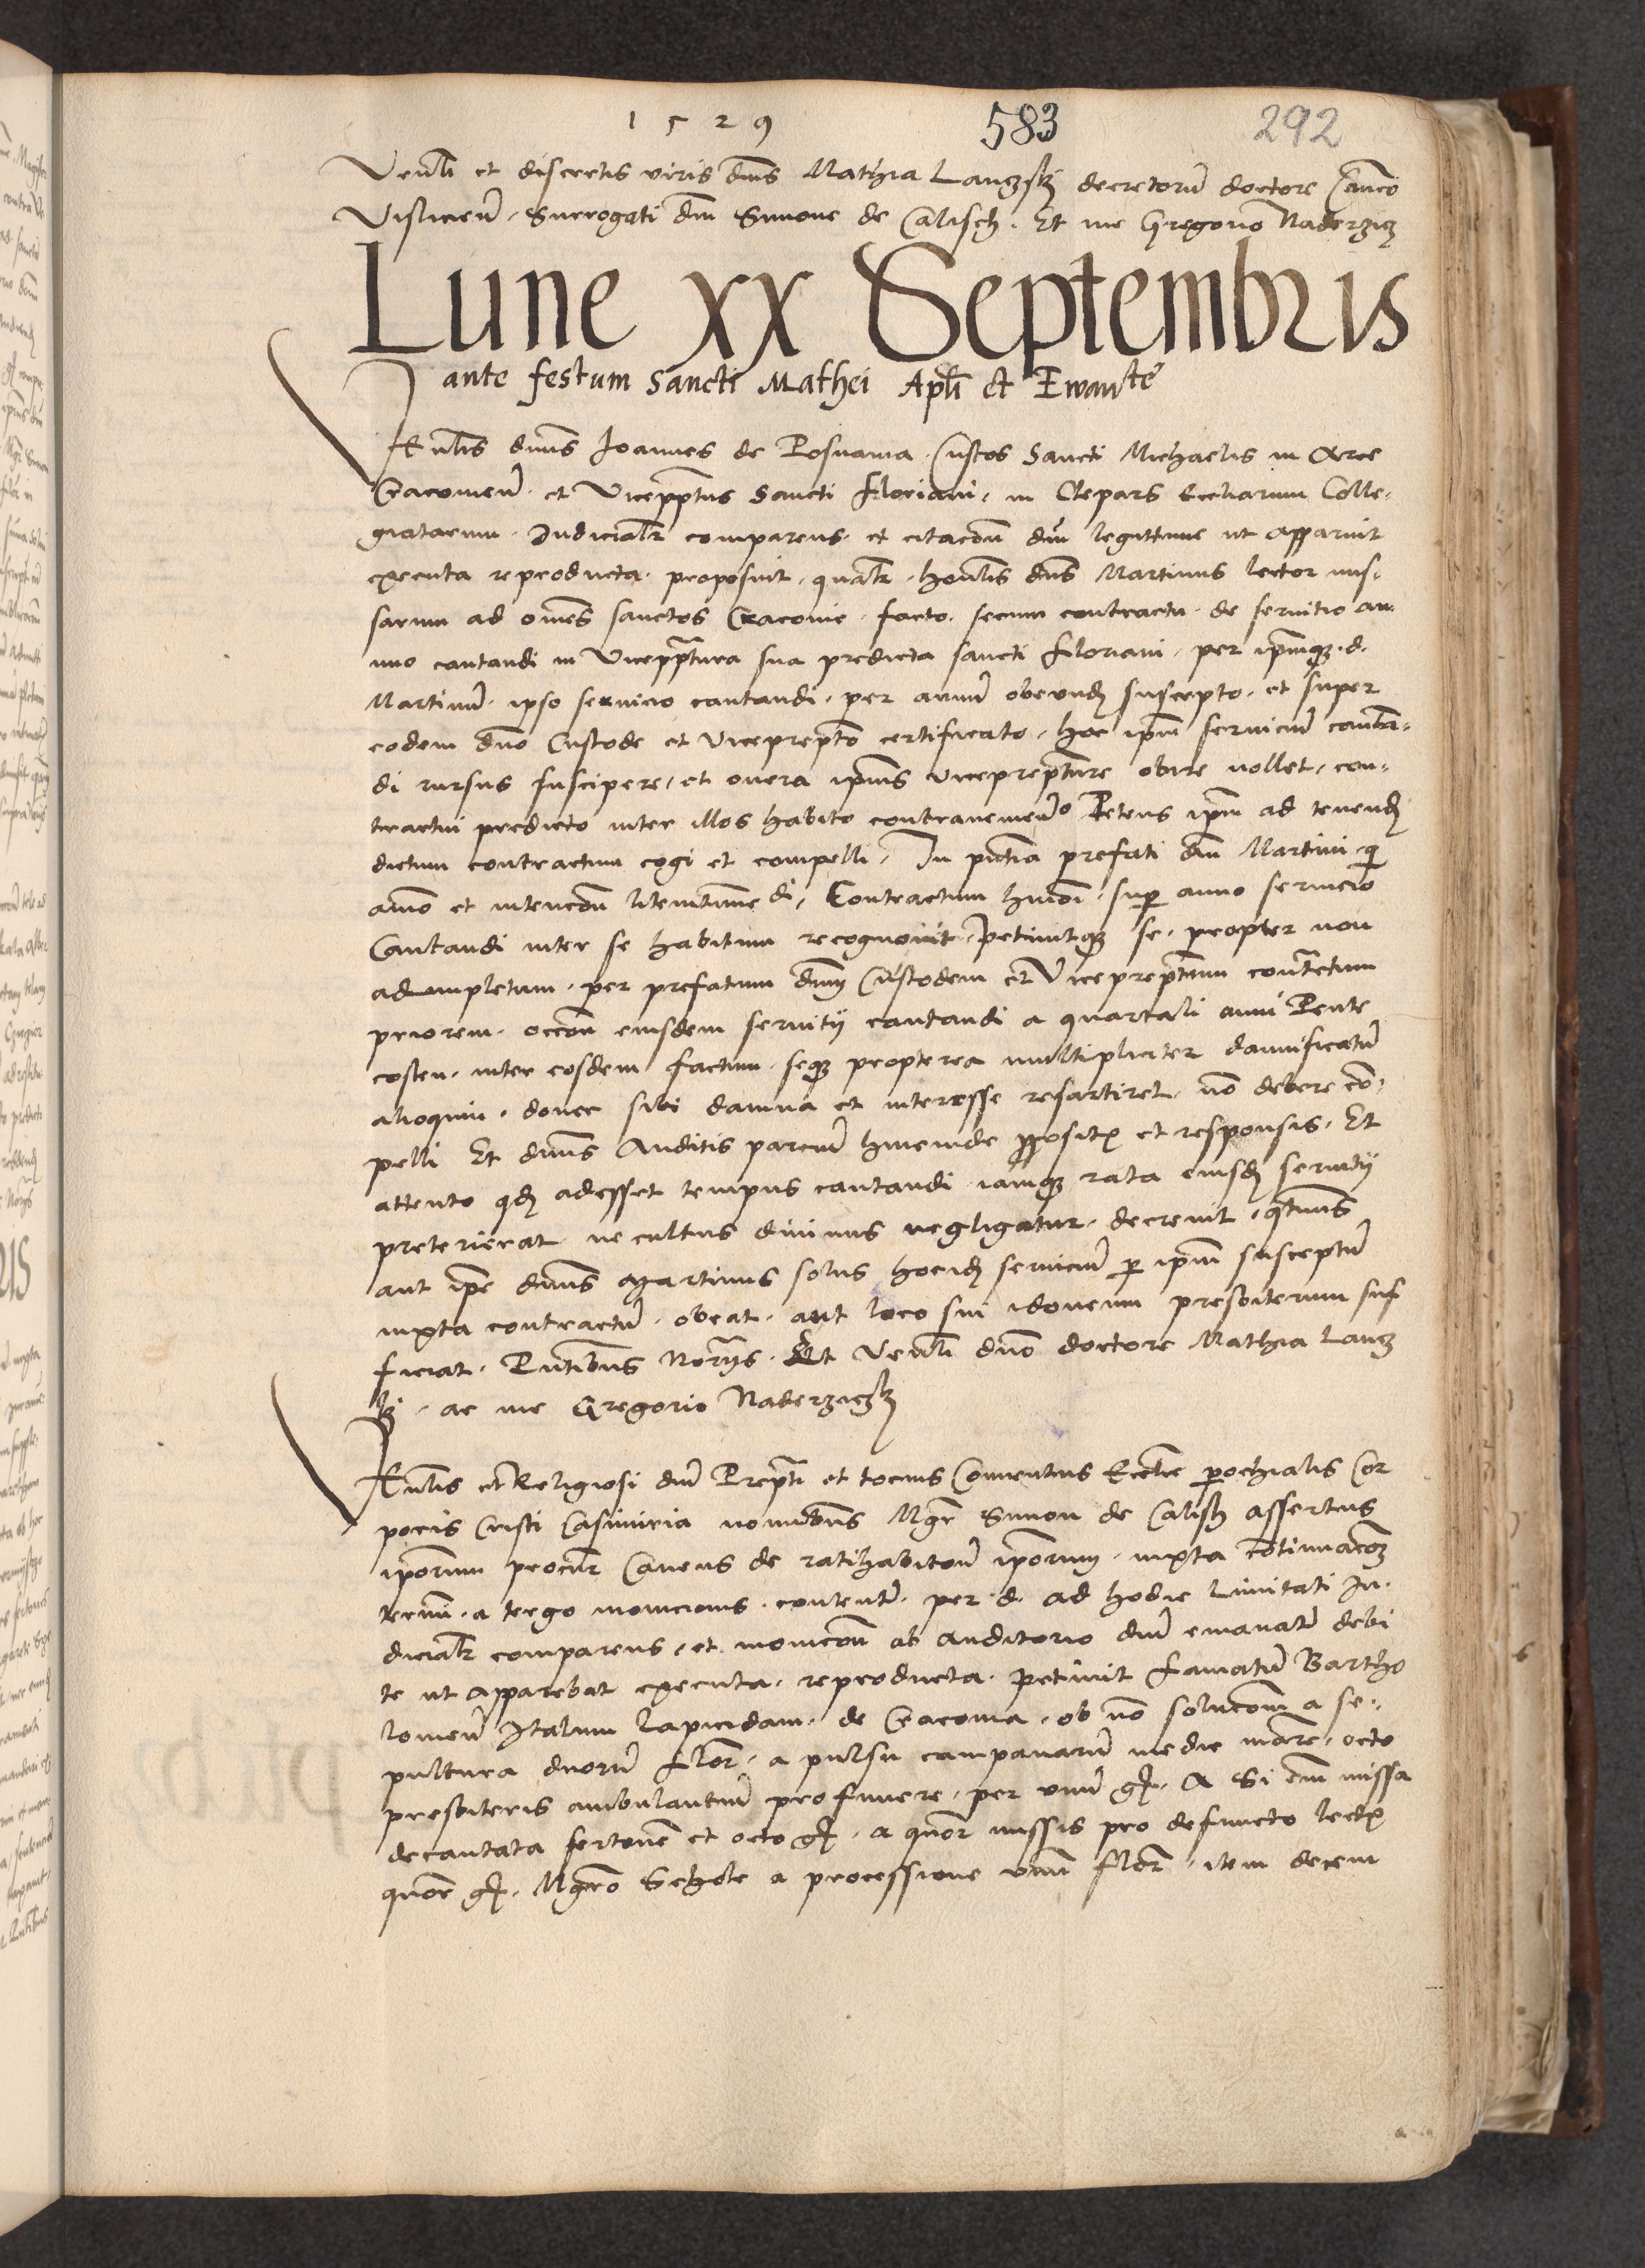 1529 583 292
Venli et discretis viris dnis Mathia Lanczskj decretoru doctore Canco
Vislicien. Surrogati dni Simone de Calisch. Et me Gregorio Naderzicz
Lune xx Septembris
ante festum Sancti Mathei Apli et Ewante
Venlis dnus Joannes de Posnania Custos Sancti Michaelis in Arce
Cracovien. et Viceppttus Sancti Floriani, in Clepars Eccliarum Colle,
giatarum. Judicialr comparens. et citacom dni legittime ut apparuit
executa reproducta. proposuit. qualr. honlis dnus Martinus lector mis,
sarum ad omes sanctos Cracovie. facto. secum contractu. de servitio an,
nuo cantandi in Vicepptura sua predicta sancti Floriani, per ipmqz. d.
Martinum. ipso servicio cantandi. per annu obeund suscepto. et super
eodem dno Custode et Viceprepto certificato. hoc ipm serviciu cantan,
di rursus suscipere, et onera ipius viceprepture obire nollet, con,
tractui predicto inter illos habito contraveniendo Petens ipm ad tenend
dictum contractum cogi et compelli, In pntia prefati dni Martini qi
animo et intencom litem di, Contractum hmoi. sup anno servicio
Cantandi inter se habitum recognovit. petiuitqz se. propter non
adimpletum. per prefatum dnm Custodem et Viceprepttum contractum
priorem. occom eiusdem servitij cantandi a quartali anni Pente
costen. inter eosdem factum. seqz propterea multipliciter damnificatu
alioquin. donec sibi damna et interesse resartiret. no debere com
pelli Et dnus Auditis parciu hincinde ppositis et responsis. Et
attento qd adesset tempus cantandi iamqz rata eiusd servitij
preterierat ne cultus divinus negligatur. decrevit. qtinus
aut ipe dnus Martinus solus hocid serviciu p ipm susceptu
iuxta contractu. obeat. aut loco sui idoneum presbiterum suf
ficiat. Pntibus Notarys. Et Venli dno doctore Mathia Lancz
kj. ac me Gregorio Naderziczkj
Venlis et Religiosi dni Prepti et tocius Conventus Ecclie parochialis Cor
poris Cristi Casimiria nominibus Mgr Simon de Calisch assertus
iporum procur Cavens de ratihabitom iporum. iuxta continuacom
termi. a tergo monicionis. content. per d. ad hodie limitati Ju,
dicialr comparens, et monicom ab auditorio dni emanat debi
te ut apparebat executa. reproducta. petiuit Famatu Bartho
lomeu Italum lapicidam. de Cracovia. ob no solucom a se,
pultura duoru flor. a pulsu campanaru medie marc. octo
presbiteris ambulantiu pro funere, per unu gr. A Si em missa
decantata fertonem et octo gr. a quor missis pro defuncto lectis
quor gr. Mgro Schole a processione unu flor. item decem